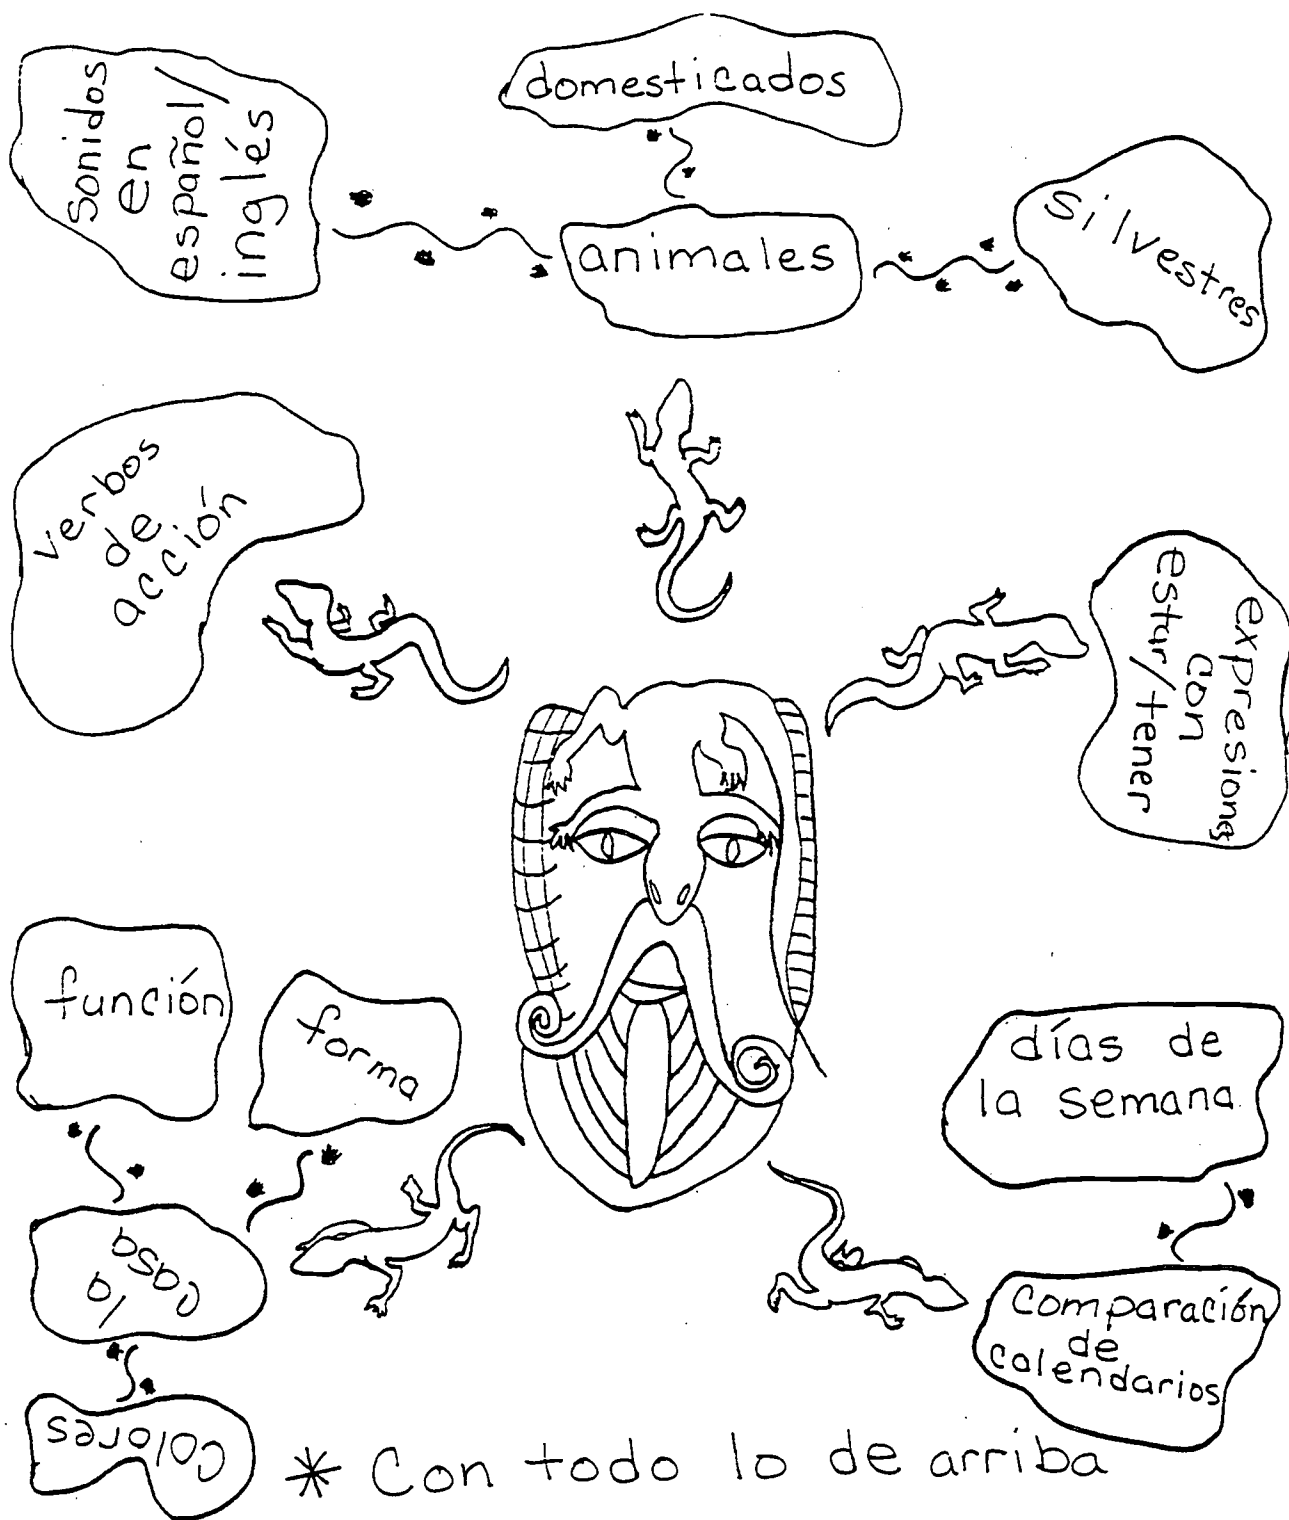 sonidos
en
español/
inglés
domesticados
animales
silvestres
verbos
de
acción
expresiones
con
estar/tener
función
forma
la
casa
colores
días de
la semana
comparación
de
calendarios
* Con todo lo de arriba